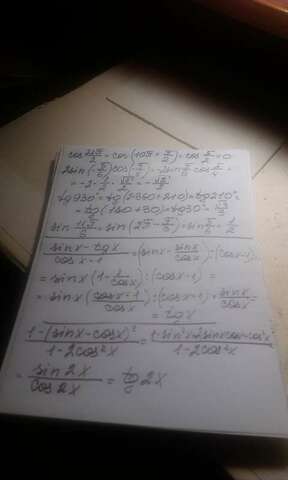 cos 21π/2 = cos(10π + π/2) = cos π/2 = 0
2sin(-π/6)cos(π/4) = -2sin π/6 cos π/4 =
= -2 · 1/2 · √2/2 = -√2/2
tg930° = tg(2·360+210) = tg210° =
= tg(180+30) = tg30° = √3/3
sin 11π/6 = sin(2π - π/6) = sin π/6 = 1/2
(sinx - tgx)/(cosx - 1) = (sinx - sinx/cosx) : (cosx - 1) =
= sinx(1 - 1/cosx) : (cosx - 1) =
= sinx(cosx - 1/cosx) : (cosx - 1) = sinx/cosx =
= tgx
(1 - (sinx - cosx)²)/(1 - 2cos²x) = (1 - sin²x + 2sinxcosx - cos²x)/(1 - 2cos²x)
= sin2x/cos2x = tg2x